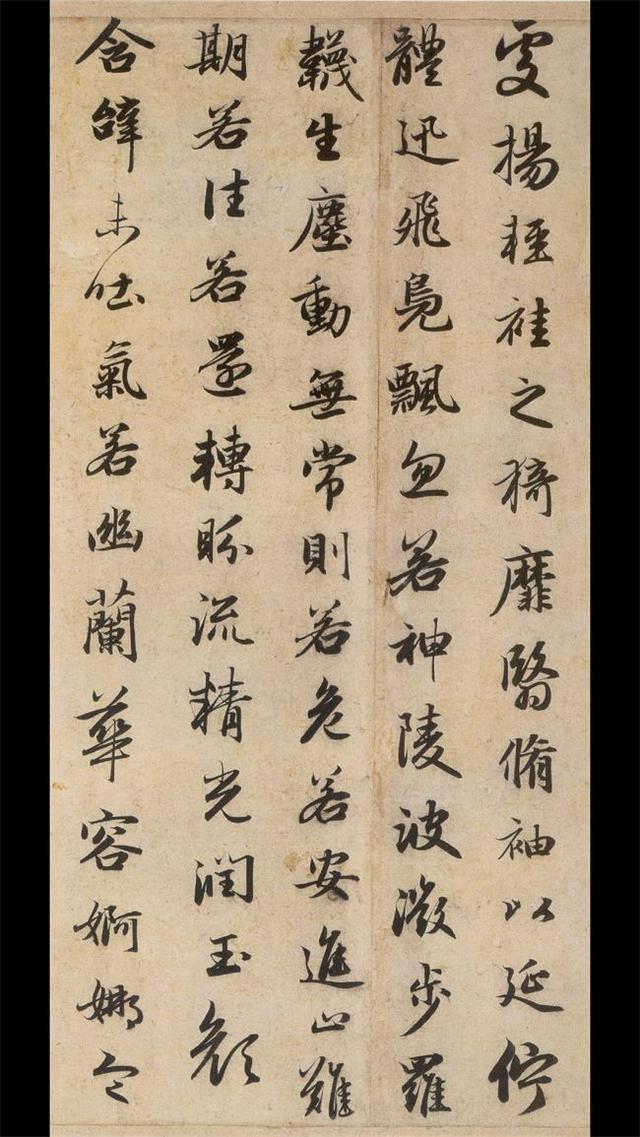 爰揚輕袿之猗靡翳脩袖以延佇
體迅飛鳧飄忽若神陵波微步羅
韈生塵動無常則若危若安進止難
期若往若還轉眄流精光潤玉顏
含辭未吐氣若幽蘭華容婀娜令